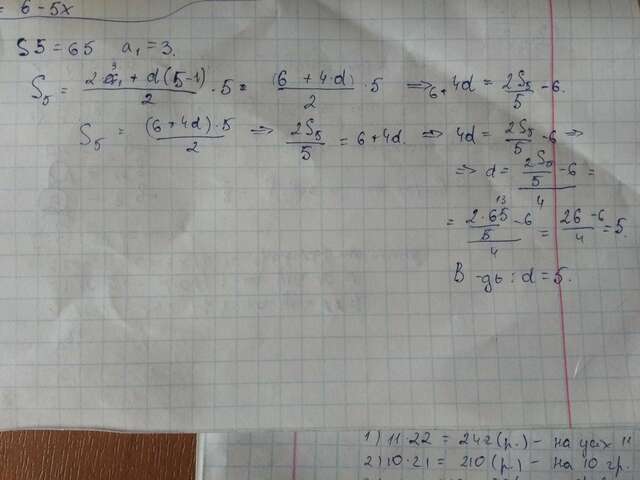 = 6 - 5x
S5 = 65 a₁ = 3.
S₅ = (2·a₁ + d(5-1))/2 · 5 = (6 + 4·d)/2 · 5 => 6+ 4d = 2S₅/5 - 6.
S₅ = (6 + 4d)·5/2 => 2S₅/5 = 6 + 4d. => 4d = 2S₅/5 - 6 =>
=> d = (2S₅/5 - 6)/4 =
= (2·65/5 - 6)/4 = (26 - 6)/4 = 5.
В-дь: d = 5.
1) 11·22 = 242(р.) - на усіх 11
2) 10·21 = 210(р.) - на 10 гр.